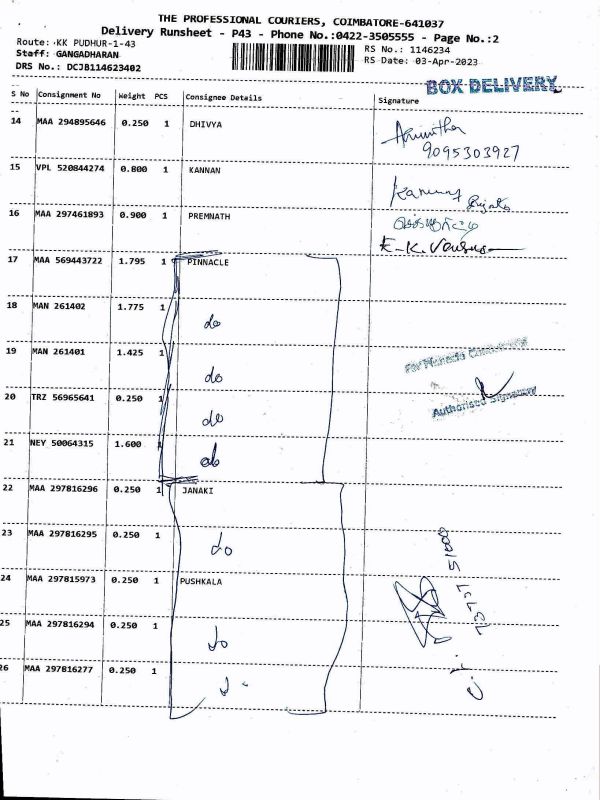 THE PROFESSIONAL COURIERS, COIMBATORE-641037
Delivery Runsheet - P43 - Phone No.:0422-3505555 - Page No.:2
Route: KK PUDHUR-1-43
RS No.: 1146234
Staff: GANGADHARAN
RS Date: 03-Apr-2023
DRS No.: DCJB114623402
BOX DELIVERY
S No Consignment No Weight PCS Consignee Details Signature
14 MAA 294895646 0.250 1 DHIVYA
9095303927
15 VPL 520844274 0.800 1 KANNAN
16 MAA 297461893 0.900 1 PREMNATH
17 MAA 569443722 1.795 1 PINNACLE
18 MAN 261402 1.775 1 do
19 MAN 261401 1.425 1 do
20 TRZ 56965641 0.250 1 do
Authorised Signatory
21 NEY 50064315 1.600 1 do
22 MAA 297816296 0.250 1 JANAKI
23 MAA 297816295 0.250 1 do
24 MAA 297815973 0.250 1 PUSHKALA
25 MAA 297816294 0.250 1 do
26 MAA 297816277 0.250 1